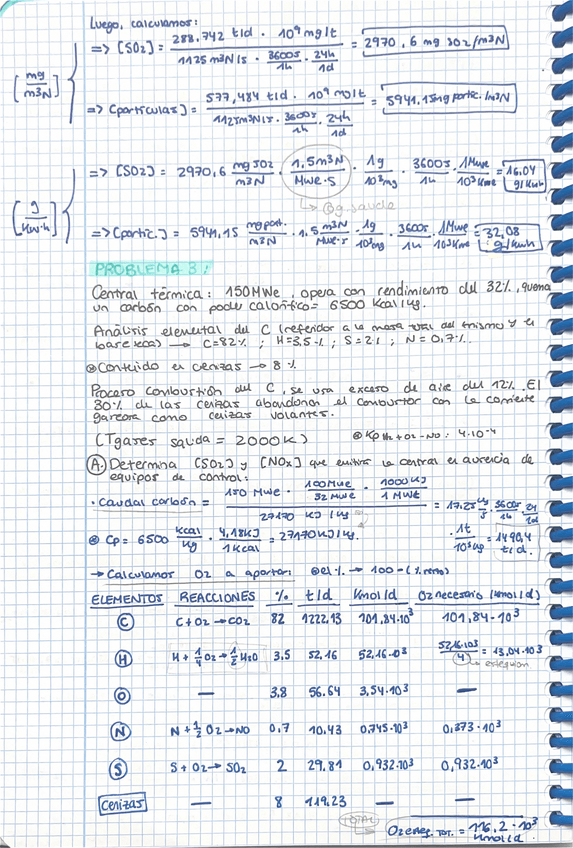 Luego, calculamos:
=> [SO2] = 288,742 t/d · 10⁹ mg/t / 1125 m3N/s · 3600s/1h · 24h/1d = 2970,6 mg SO2/m3N
[mg/m3N]
=> [partículas] = 577,484 t/d · 10⁹ mg/t / 1125m3N/s · 3600s/1h · 24h/1d = 5941,15 mg partic./m3N
=> [SO2] = 2970,6 mg SO2/m3N · 1,5m3N/MWe·s · 1g/10³mg · 3600s/1h · 1MWe/10³KWe = 16,04 g/Kwh
[g/Kw·h]
=> [partic.] = 5941,15 mg part./m3N · 1,5 m3N/MWe·s · 1g/10³mg · 3600s/1h · 1MWe/10³KWe = 32,08 g/Kwh
PROBLEMA 3:
Central térmica: 150MWe, opera con rendimiento del 32%, quema
un carbón con poder calorífico = 6500 Kcal/Kg.
Análisis elemental del C (referidor a la masa total del mismo y en
base seca) → C=82% ; H=3,5% ; S=2% ; N=0,7%.
Contenido en cenizas → 8 %
Proceso combustión del C, se usa exceso de aire del 12%. El
80% de las cenizas abandonan el combustor con la corriente
gaseosa como cenizas volantes.
(Tgases salida = 2000K) Kp N2+O2→NO : 4·10⁻⁴
A. Determina [SO2] y [NOx] que emitiría la central en ausencia de
equipos de control:
· Caudal carbón = 150 MWe · 100MWt/32MWe · 1000KJ/1MWt / 27170 KJ/Kg = 17,25 Kg/s · 3600s/1h · 24/1d
· 1t/10³Kg = 1490,4 t/d.
Cp = 6500 Kcal/Kg · 4,18KJ/1Kcal = 27170KJ/Kg.
→ Calculamos O2 a aportar: el % → 100-(% resto)
ELEMENTOS REACCIONES % t/d Kmol/d O2 necesario (Kmol/d)
C C+O2→CO2 82 1222,13 101,84·10³ 101,84·10³
H H+1/4O2→1/2H2O 3,5 52,16 52,16·10³ 52,16·10³/4 = 13,04·10³
O — 3,8 56,64 3,54·10³ —
N N+1/2O2→NO 0,7 10,43 0,745·10³ 0,373·10³
S S+O2→SO2 2 29,81 0,932·10³ 0,932·10³
Cenizas — 8 119,23 — —
TOTAL O2 neces. TOT. = 116,2·10³ Kmol/d.